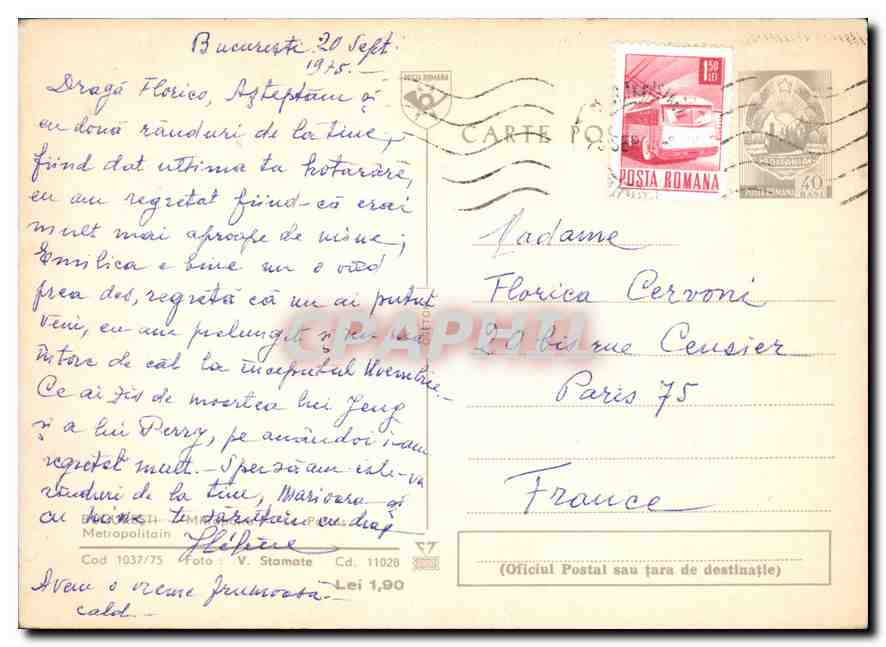 București 20 Sept.
1975.-
Dragă Florico, Așteptam și
eu două rânduri de la tine,
fiind dat ultima ta hotarâre,
eu am regretat fiind-că erai
mult mai aproape de mine;
Emilica e bine nu o văd
prea des, regretă că nu ai putut
veni, eu am prelungit și
întorc de cât la începutul Noembrie.-
Ce ai zis de moartea lui Jeny
și a lui Perry, pe amândoi i-am
regretat mult.- Speram
rânduri de la tine, Marioara și
cu mine te sărutăm cu drag
Hélène
Avem o vreme frumoasă
cald-
BUCUREȘTI
Metropolitain
Cod 1037/75 Foto: V. Stamate Cd. 11028
Lei 1,90
POSTA ROMANA
CARTE POS
1,50
LEI
POSTA ROMANA
ROMANIA
POSTA ROMANA 40
BANI
Madame
Florica Cervoni
20 bis rue Censier
Paris 75
France
(Oficiul Postal sau țara de destinație)
CPAPHIL